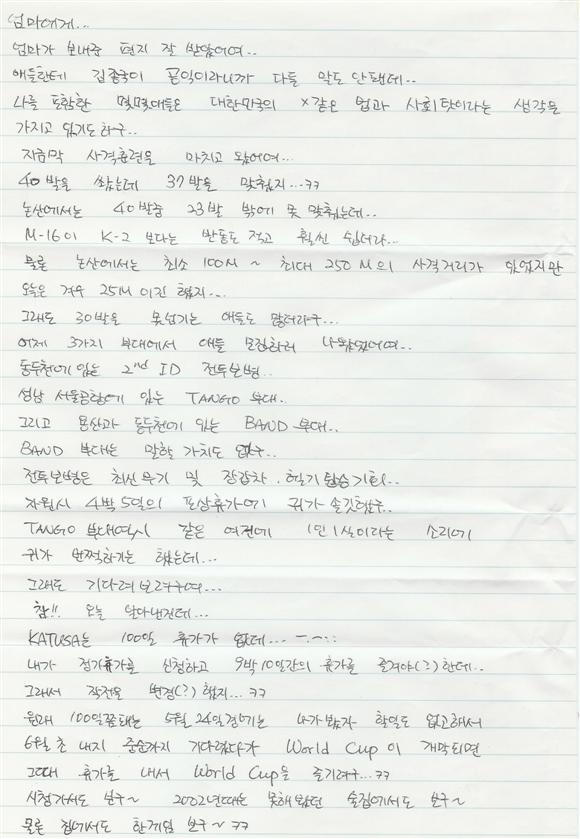 엄마에게...
엄마가 보내준 편지 잘 받았어여..
애들한테 김종국이 공익이라니까 다들 말도 안됀데..
나를 포함한 몇몇애들은 대한민국의 X같은 법과 사회탓이라는 생각을
가지고 있기도하구..
지금막 사격훈련을 마치고 왔어여...
40발을 쐈는데 37발을 맞췄지...ㅋㅋ
논산에서는 40발중 23발 밖에 못 맞췄는데..
M-16이 K-2 보다는 반동도 적고 훨씬 쉽더라...
물론 논산에서는 최소 100M ~ 최대 250M의 사격거리가 있었지만
오늘은 겨우 25M 이긴 했지...
그래도 30발을 못넘기는 애들도 많더라구...
어제 3가지 부대에서 애들 모집하러 나왔었어여..
동두천에 있는 2nd ID 전투보병..
성남 서울공항에 있는 TANGO 부대..
그리고 용산과 동두천에 있는 BAND 부대..
BAND 부대는 말할 가치도 없구..
전투보병은 최신무기 및 장갑차, 헬기 탑승기회..
자원시 4박5일의 포상휴가에 귀가 솔깃했구..
TANGO 부대역시 같은 여건에 1인 1실이라는 소리에
귀가 번쩍하기는 했는데...
그래도 기다려보려구여...
참!! 오늘 알아낸건데...
KATUSA는 100일 휴가가 없데... ㅡ.ㅡ;;
내가 정기휴가를 신청하고 9박10일간의 휴가를 즐겨야(?)한데..
그래서 작전을 변경(?)했지... ㅋㅋ
원래 100일쯤돼는 5월24일경에는 나가봤자 할일도 없고해서
6월 초 내지 중순까지 기다렸다가 World Cup이 개막되면
그때 휴가를 내서 World Cup을 즐기려구...ㅋㅋ
시청가서도 보구~ 2002년때는 못해봤던 술집에서도 보구~
물론 집에서도 한게임 보구~ ㅋㅋ